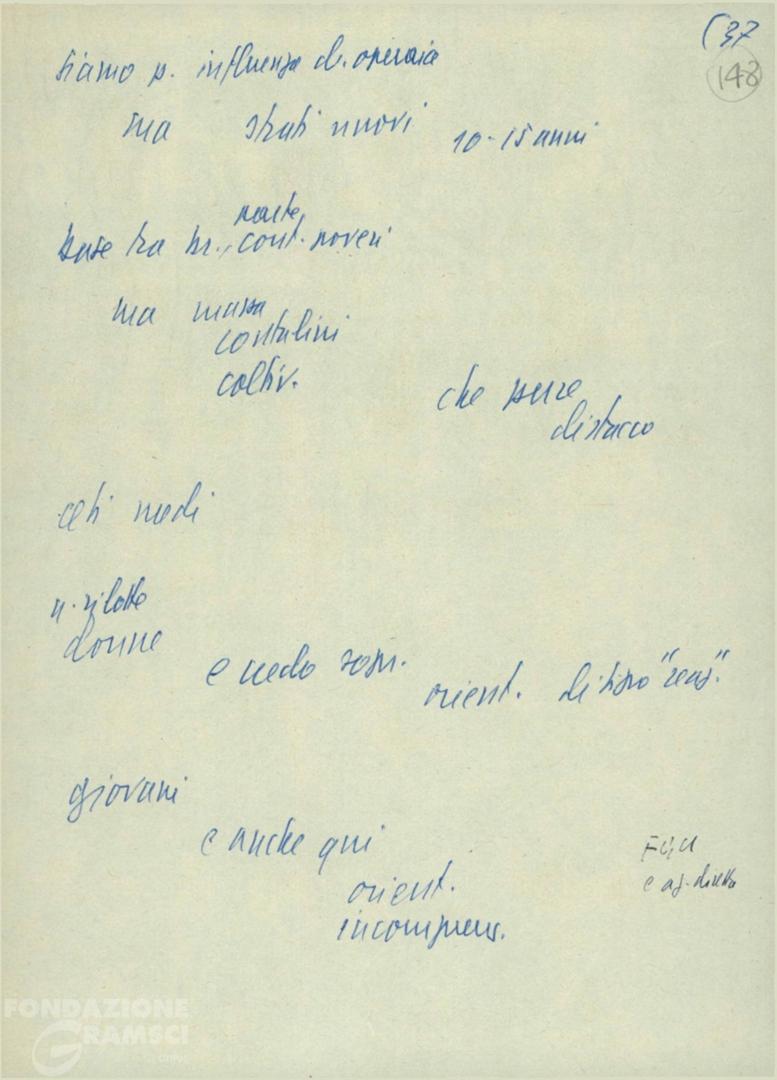 (37
148
siamo p. influenza cl. operaia
ma strati nuovi 10-15 anni
parte
base tra br., cont. poveri
ma massa
contadini
coltiv.
che pure
distacco
ceti medi
donne
e credo sopr.
orient. di tipo "reaz".
giovani
e anche qui
orient.
incomprens.
FGCI
e az. diretta
FONDAZIONE
GRAMSCI